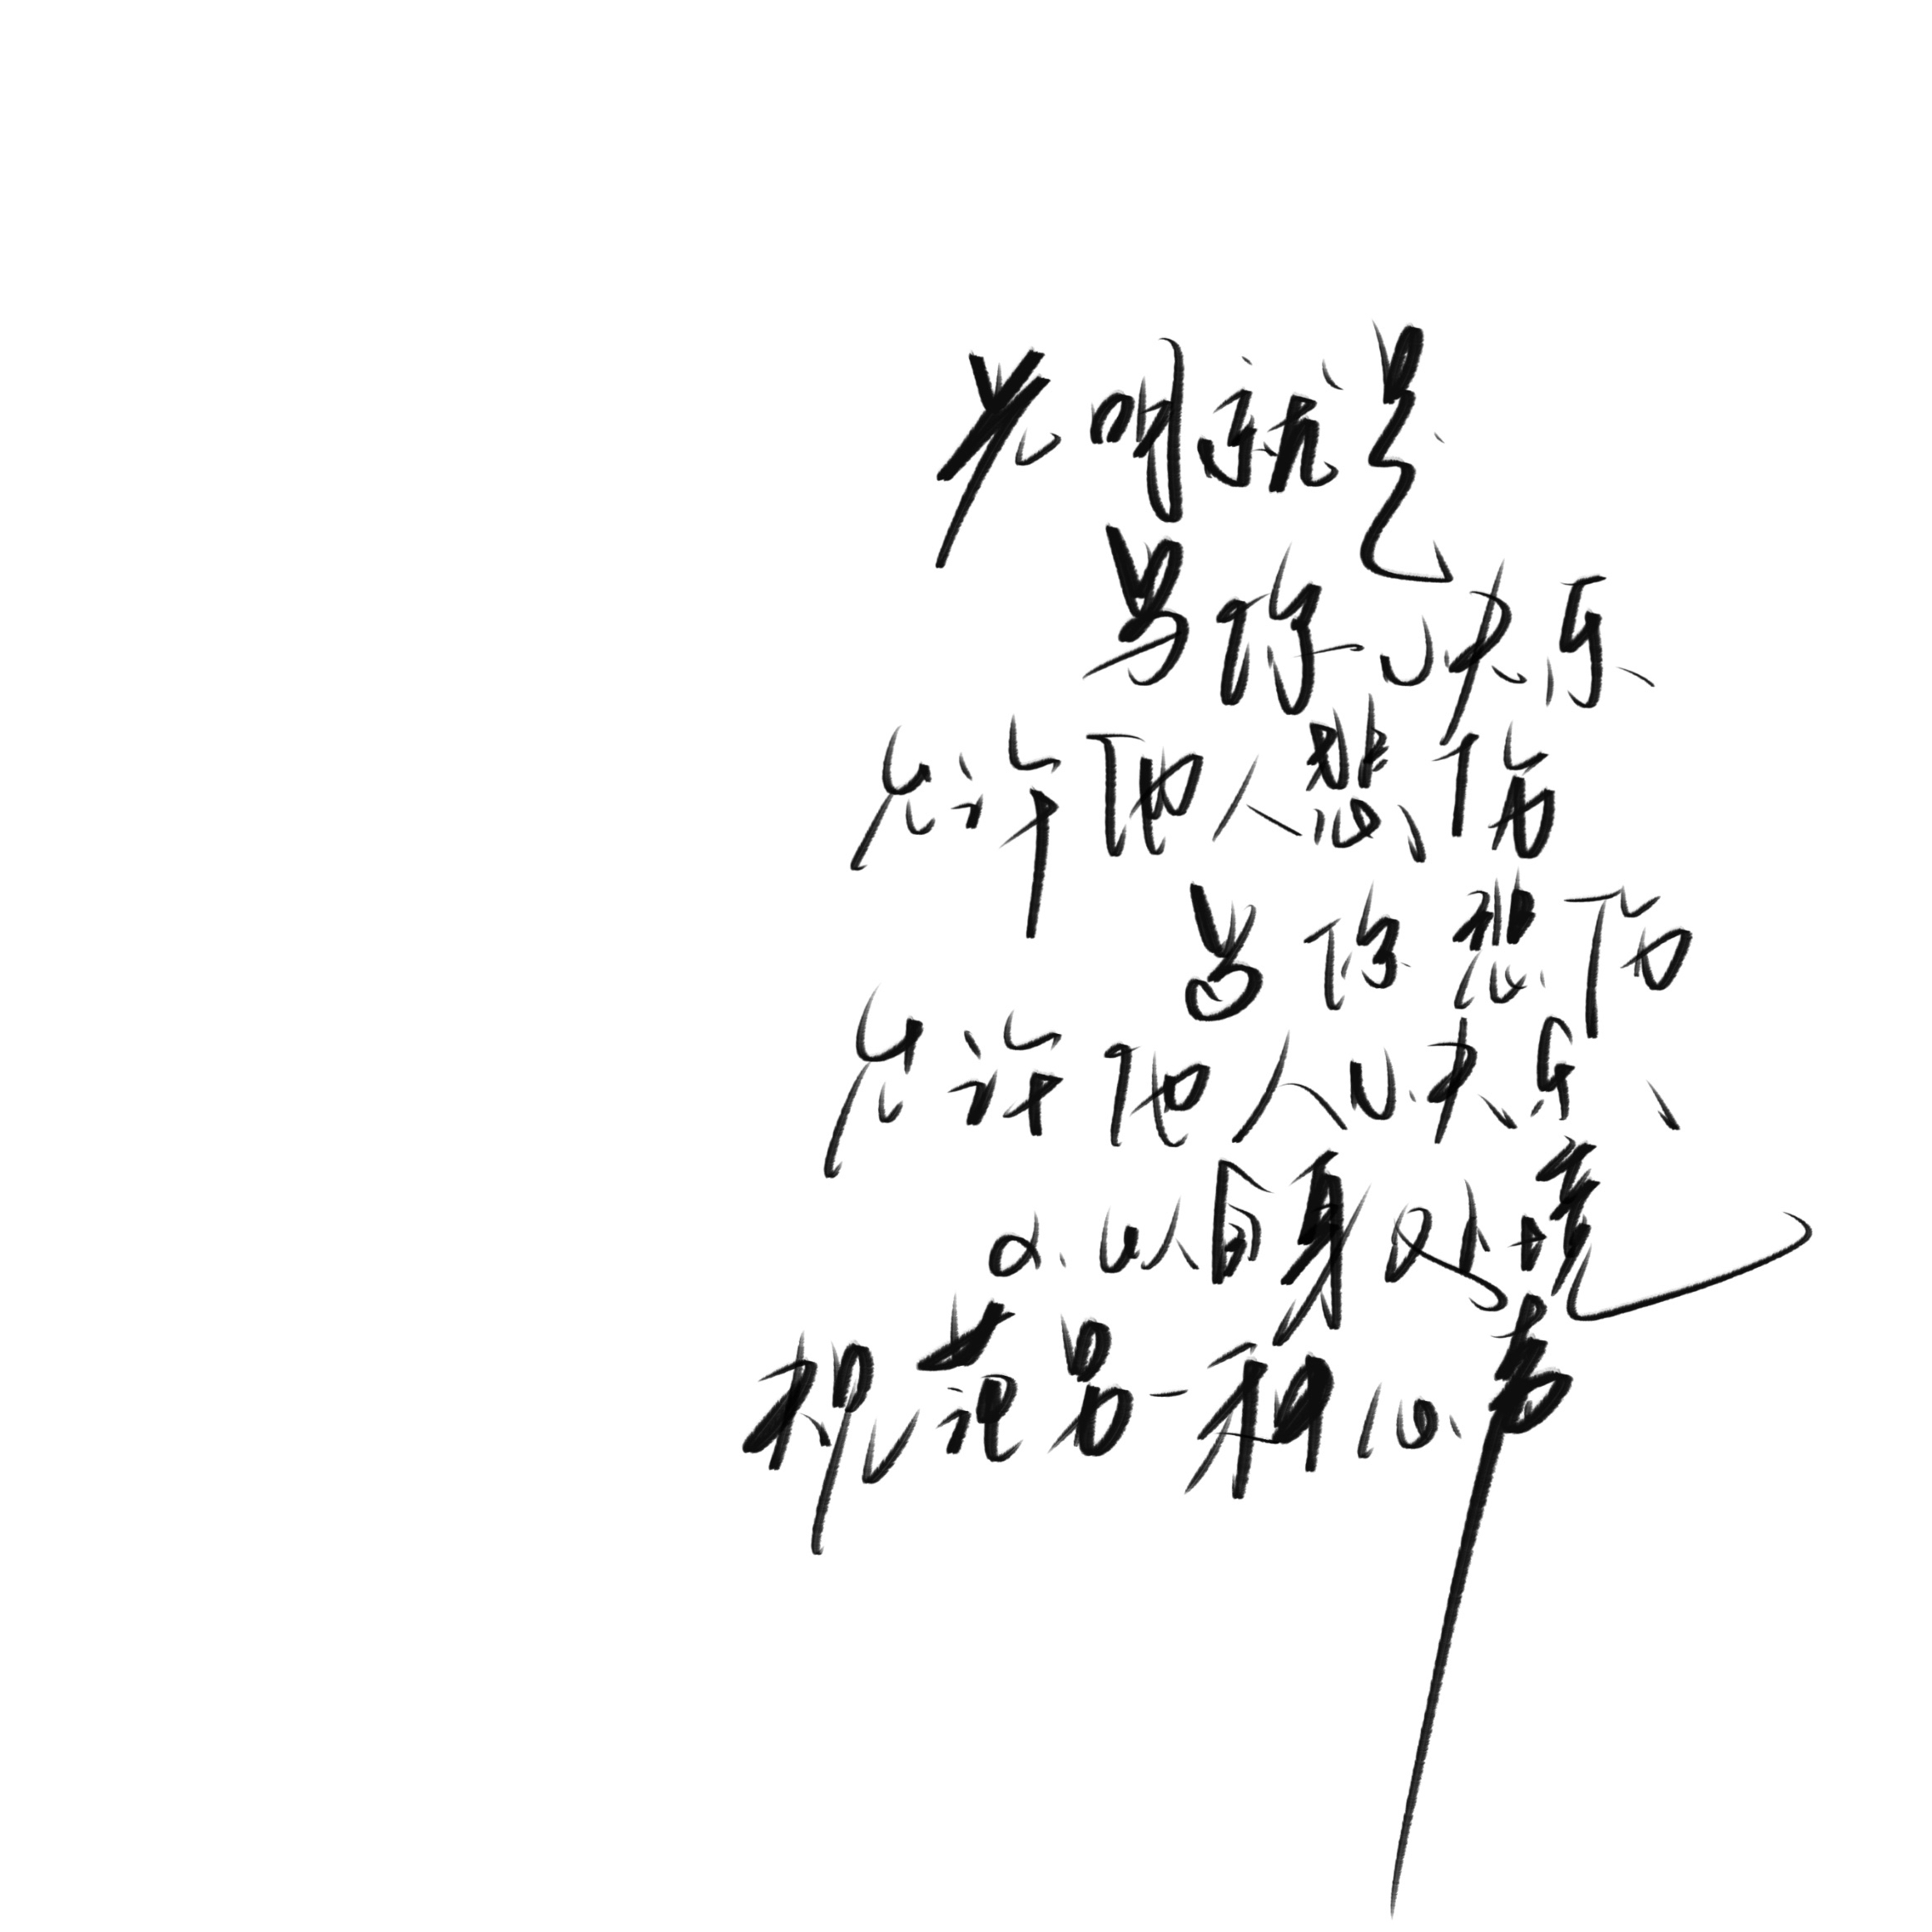 光明就是
当你快乐
允许他人悲伤
当你悲伤
允许他人快乐
不以自身处境
规范另一种心声